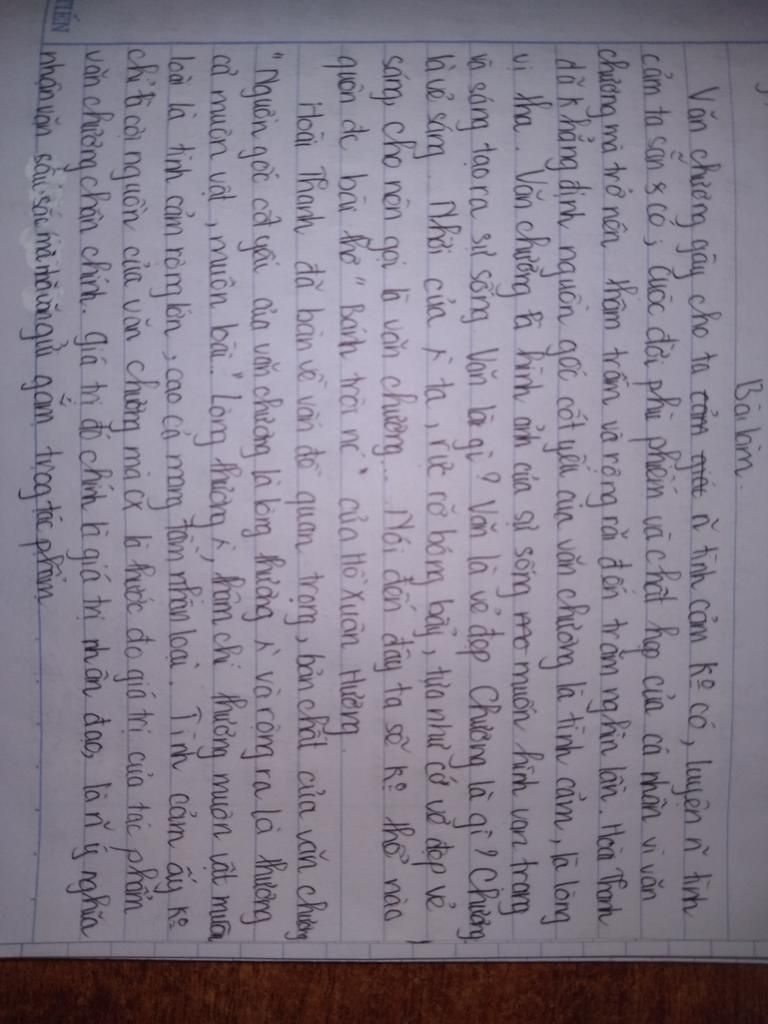 TIẾN
Bài làm.
Văn chương gây cho ta ñ tình cảm kº có, luyện ñ tình
cảm ta sẵn có; cuộc đời phù phiếm và chật hẹp của cá nhân vì văn
chương mà trở nên thâm trầm và rộng rãi đến trăm nghìn lần. Hoài Thanh
đã khẳng định nguồn gốc cốt yếu của văn chương là tình cảm, là lòng
vị tha. Văn chương là hình ảnh của sự sống muôn hình vạn trạng
và sáng tạo ra sự sống. Văn là gì? Văn là vẻ đẹp. Chương là gì? Chương
là vẻ sáng. Nhời của ta, rực rỡ bóng bẩy, tựa như có vẻ đẹp vẻ
sáng, cho nên gọi là văn chương... Nói đến đây ta sẽ kº thể nào
quên đc bài thơ "Bánh trôi nc" của Hồ Xuân Hương.
Hoài Thanh đã bàn về vấn đề quan trọng, bản chất của văn chương
"Nguồn gốc cốt yếu của văn chương là lòng thương và rộng ra là thương
cả muôn vật, muôn loài." Lòng thương, thậm chí thương muôn vật muôn
loài là tình cảm rộng lớn, cao cả mang tầm nhân loại. Tình cảm ấy kº
chỉ là cội nguồn của văn chương mà cx là thước đo giá trị của tác phẩm
văn chương chân chính. Giá trị đó chính là giá trị nhân đạo, là ñ ý nghĩa
nhân văn sâu sắc mà nhà văn gửi gắm trong tác phẩm